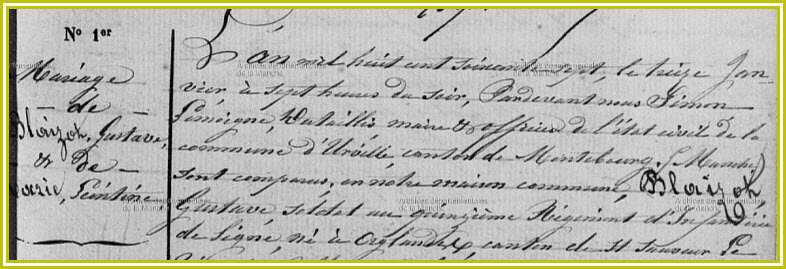 N° 1er
Mariage
de
Blaizot, Gustave,
& de
Marie, Léontine
L'an mil huit cent soixante sept, le treize Jan-
vier à sept heures du soir, Pardevant nous Simon
Lemoigne, Vataillis, maire & officier de l'état civil de la
commune d'Urville, canton de Montebourg, (Manche)
sont comparus, en notre maison commune, Blaizot
Gustave soldat au quinzième Régiment d'Infanterie
de Ligne, né à Orglandes, canton de St Sauveur Le
Archives départementales
de la Manche